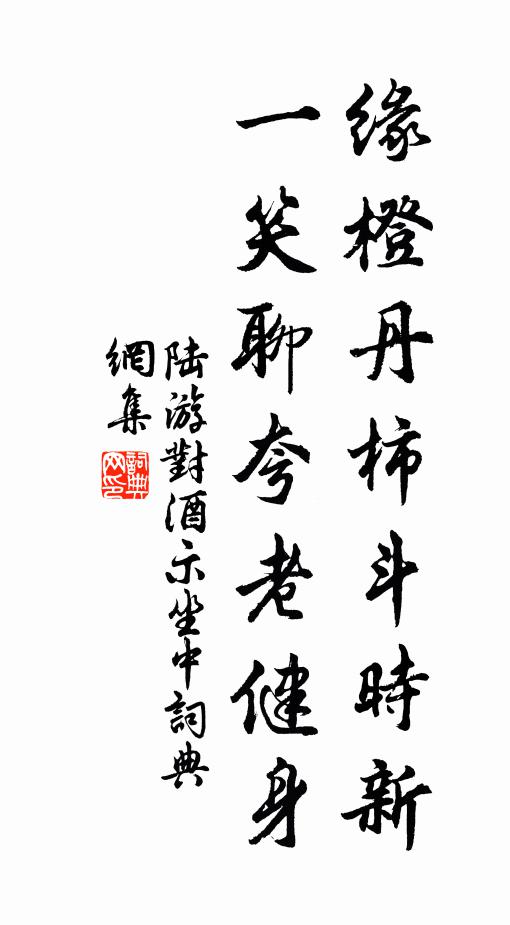 緣橙丹柿斗時新
一笑聊夸老健身
陆游對酒示坐中詞典
網集
詞典
网印